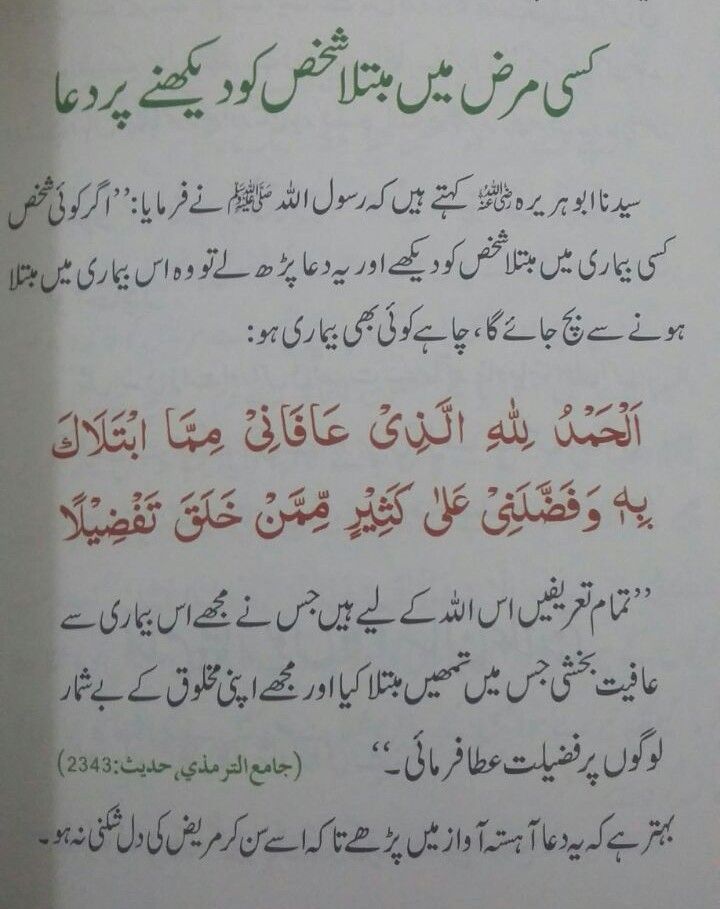 کسی مرض میں مبتلا شخص کو دیکھنے پر دعا
سیدنا ابو ہریرہ رضی اللہ عنہ کہتے ہیں کہ رسول اللہ ﷺ نے فرمایا: ’’اگر کوئی شخص
کسی بیماری میں مبتلا شخص کو دیکھے اور یہ دعا پڑھ لے تو وہ اس بیماری میں مبتلا
ہونے سے بچ جائے گا، چاہے کوئی بھی بیماری ہو:
اَلْحَمْدُ لِلّٰهِ الَّذِیْ عَافَانِیْ مِمَّا ابْتَلَاكَ
بِهٖ وَفَضَّلَنِیْ عَلٰی كَثِیْرٍ مِّمَّنْ خَلَقَ تَفْضِیْلًا
’’تمام تعریفیں اس اللہ کے لیے ہیں جس نے مجھے اس بیماری سے
عافیت بخشی جس میں تمھیں مبتلا کیا اور مجھے اپنی مخلوق کے بے شمار
لوگوں پر فضیلت عطا فرمائی۔‘‘ (جامع الترمذي، حدیث:2343)
بہتر ہے کہ یہ دعا آہستہ آواز میں پڑھے تاکہ اسے سن کر مریض کی دل شکنی نہ ہو۔